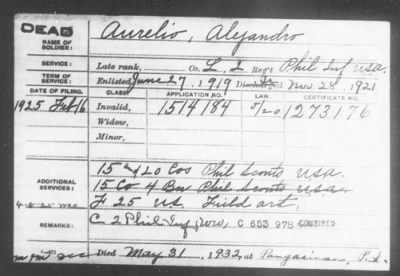 DEAD
NAME OF SOLDIER: Aurelio, Alejandro
SERVICE: Late rank, Co. L. 2 Reg't Phil Inf USA.
TERM OF SERVICE: Enlisted June 27, 1919 Discharged Nov 28, 1921
DATE OF FILING. CLASS. APPLICATION NO. LAW. CERTIFICATE NO.
1925 Feb 16 Invalid, 1514184 1273176
Widow,
Minor,
ADDITIONAL SERVICES: 15 & 120 Cos Phil Scouts USA.
15 Co 4 Bn Phil Scouts USA.
F 25 US. Field art.
REMARKS: C 2 Phil Inf C 653 978 COMBINED
Died May 31, 1932, at Pangasinan, P.I.